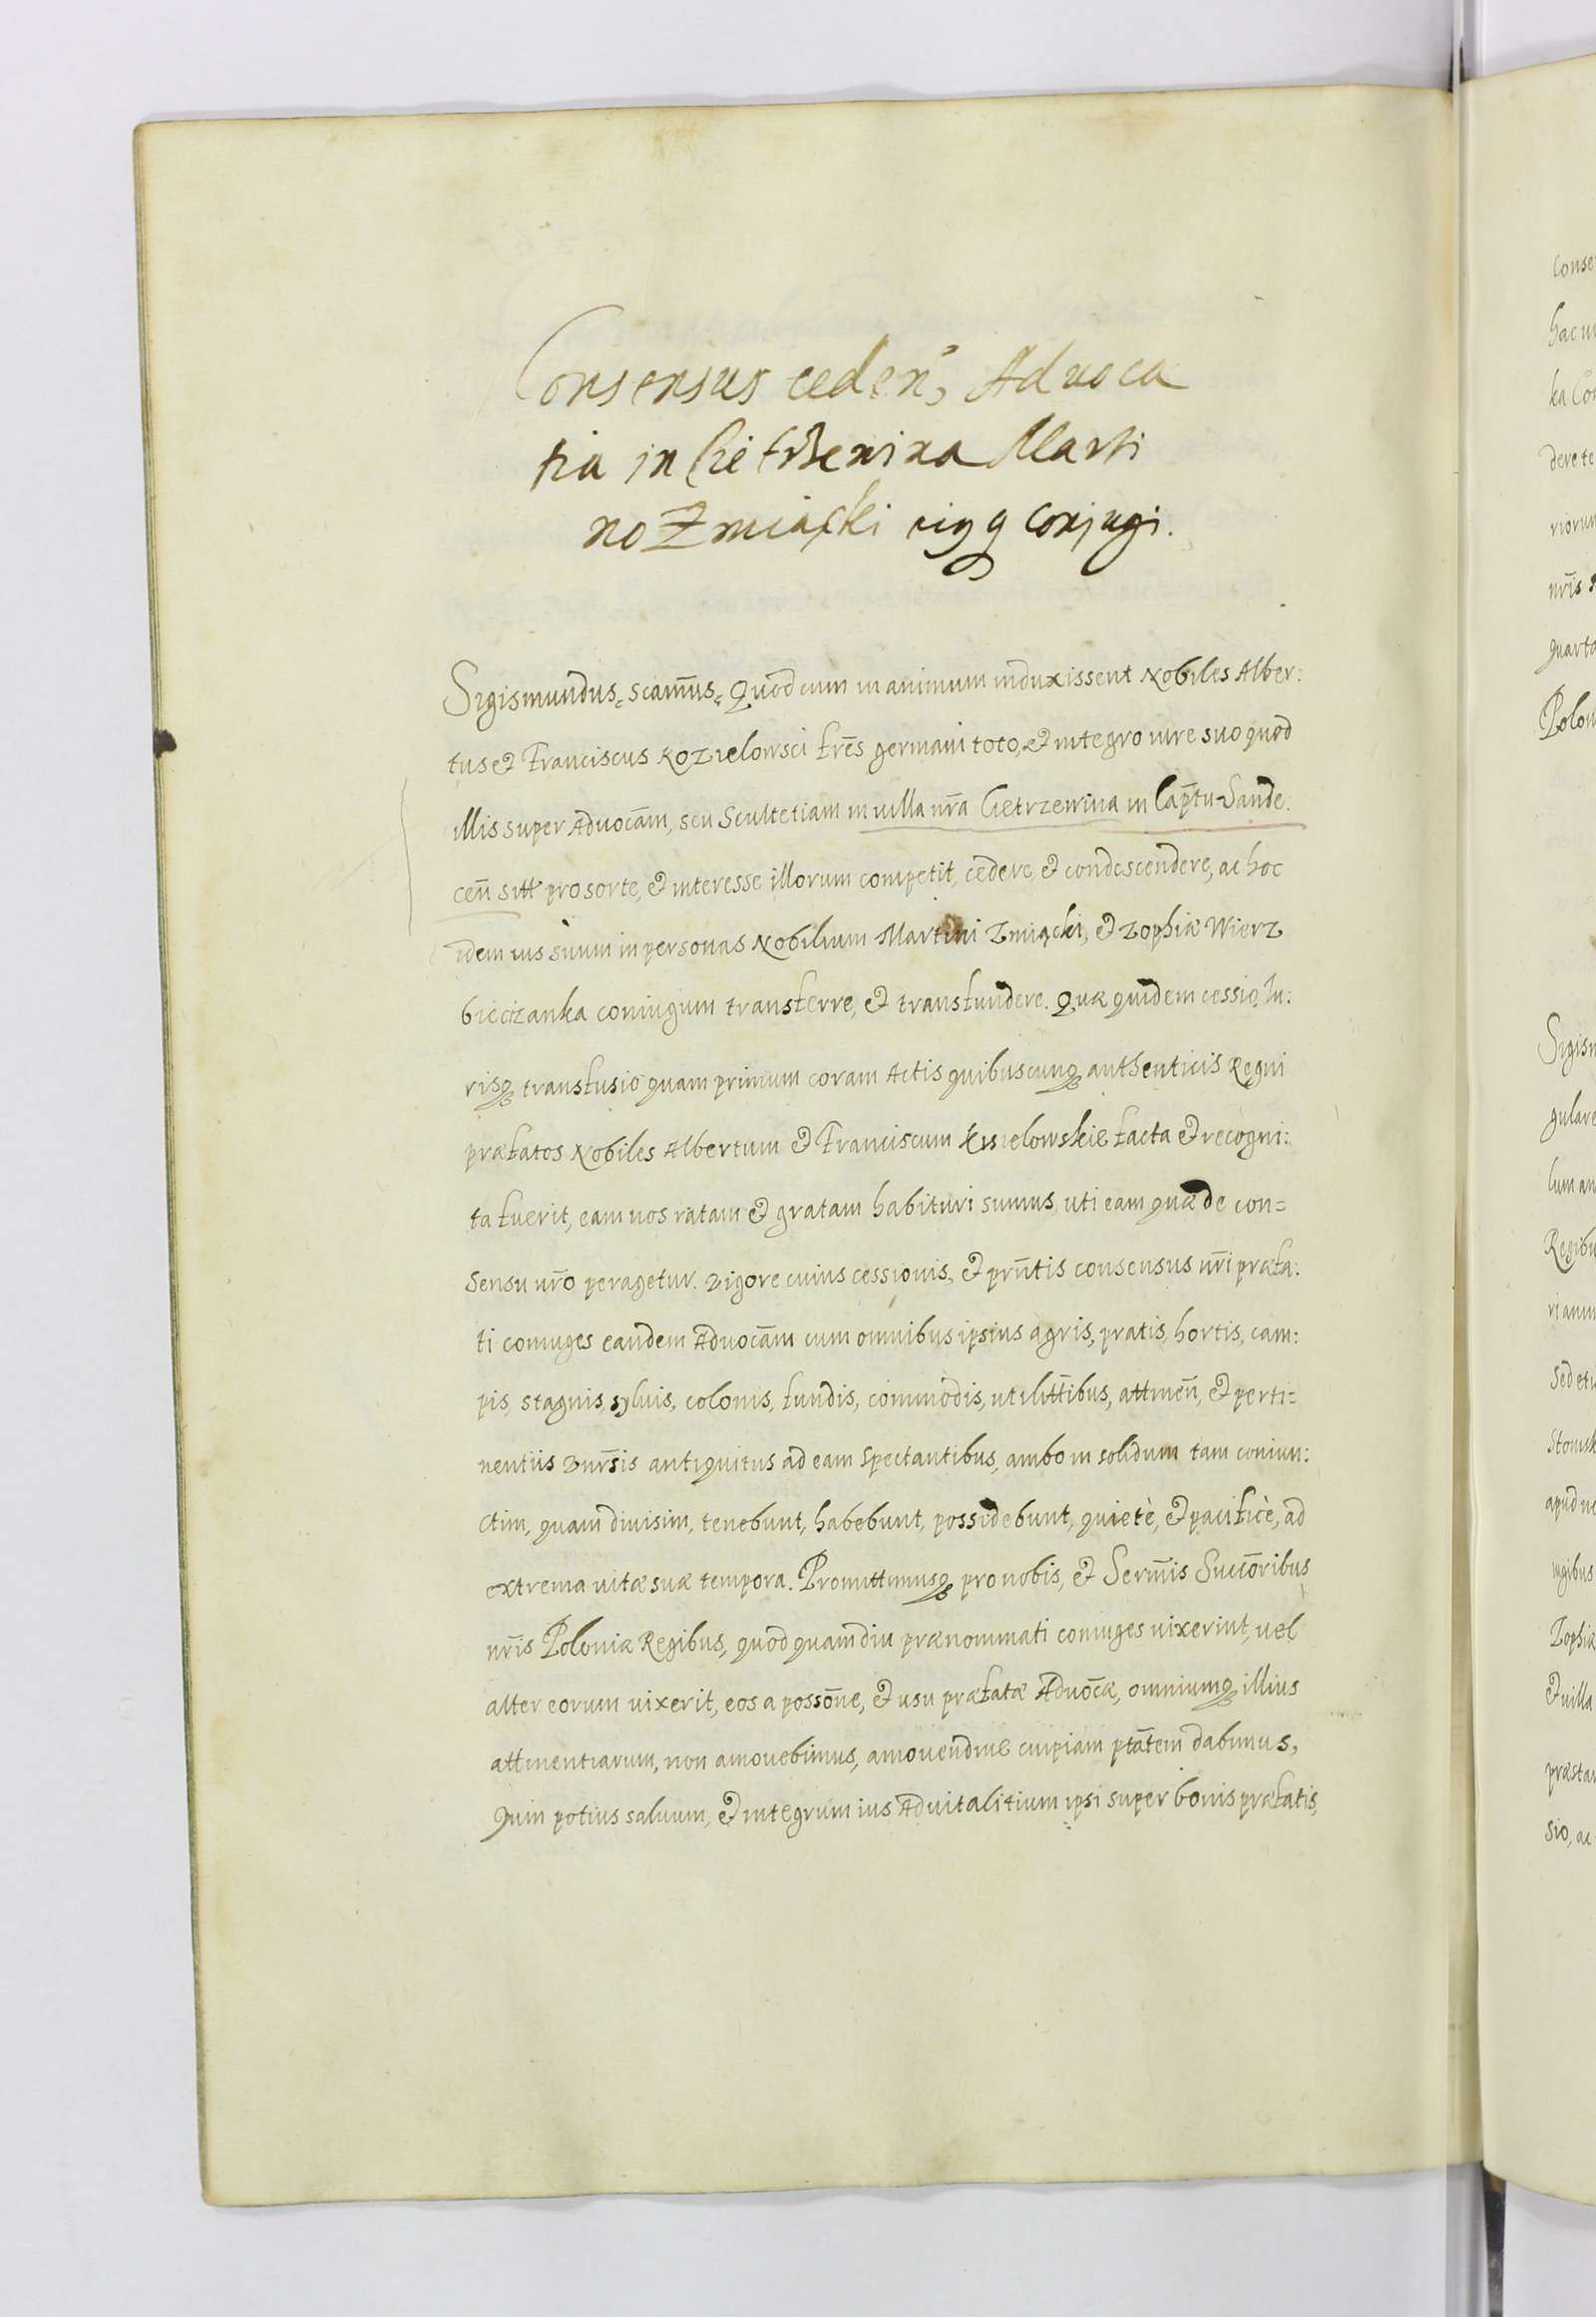 Consensus ceden, Advoca
tia in Cietrzewina Marti
no Zmiącki eiusq conjugi.
Sigismundus, scam̃us, Quod cum in animum induxissent Nobiles Alber:
tus et Franciscus Kozielowsci fr̃es germani toto, et integro iure suo quod
illis super Advocãm, seu Scultetiam in villa nr̃a Cietrzewina in Cap̃tu Sande:
ceñ sitt pro sorte, et interesse illorum competit, cedere, et condescendere, ac hoc
idem ius suum in personas Nobilium Martini Zmiącki, et Zophiæ Wierz
bieczanka coniugum transferre, et transfundere. Quæ quidem cessio, Iu:
risq transfusio quam primum coram Actis quibuscunq authenticis Regni
præfatos Nobiles Albertum et Franciscum Kisielowskie facta et recogni:
ta fuerit, eam nos ratam et gratam habituri sumus uti eam quæ de con=
sensu nr̃o peragetur. Vigore cuius cessionis, et prñtis consensus nr̃i præfa:
ti coniuges eandem Advocãm cum omnibus ipsius agris, pratis, hortis, cam:
pis, stagnis, syluis, colonis, fundis, commodis, utilitt̃ibus, attineñ, et perti=
nentiis vnr̃sis antiquitus ad eam spectantibus, ambo in solidum tam coniun:
ctim, quam diuisim, tenebunt, habebunt, possidebunt, quietè, et pacificè, ad
extrema vitæ suæ tempora. Promittimusq pro nobis, et Serm̃is Succõribus
nr̃is Poloniæ Regibus, quod quamdiu prænominati coniuges vixerint, vel
alter eorum vixerit, eos a possõne, et usu præfatæ Advõcæ, omniumq illius
attinentiarum, non amovebimus, amovendiue cuipiam ptãtem dabimus,
Quin potius saluum, et integrum ius Aduitalitium ipsi super bonis præfatis,